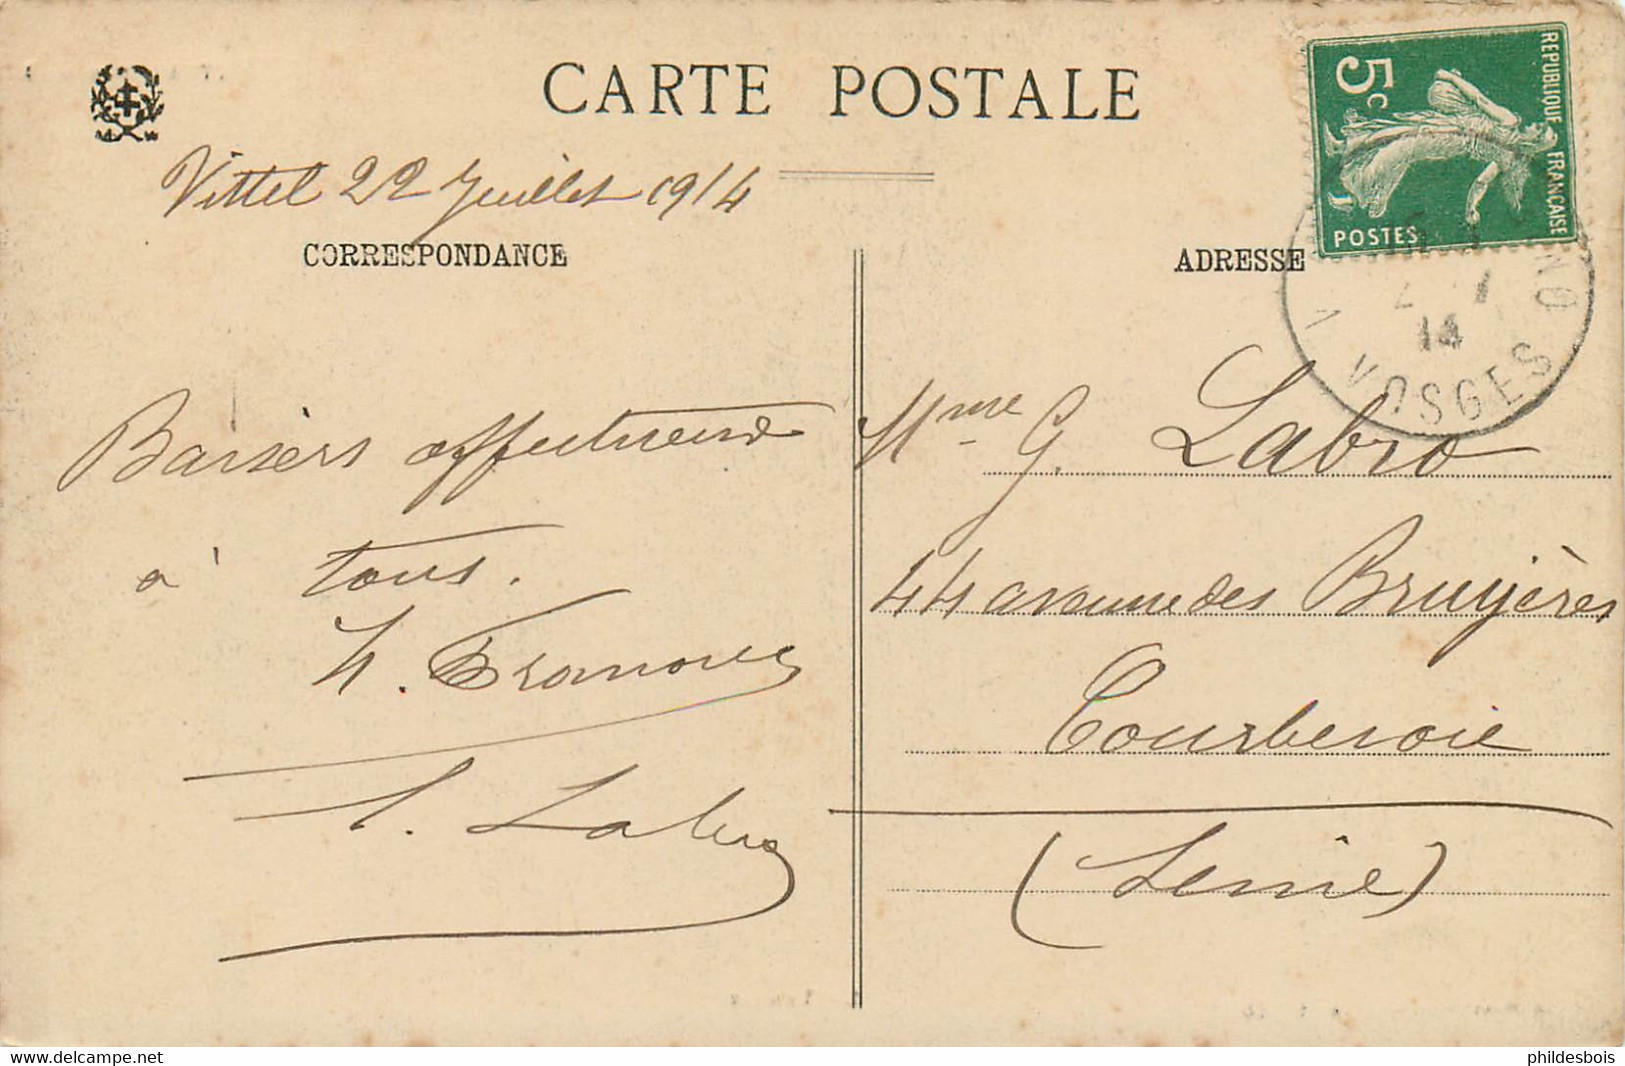 CARTE POSTALE
Vittel 22 Juillet 1914
CORRESPONDANCE
ADRESSE
5c
REPUBLIQUE FRANÇAISE
POSTES
14
VOSGES
Baisers affectueux
à tous.
Mme G. Labro
44 avenue des Bruyères
Courbevoie
(Seine)
L. Labro
www.delcampe.net
phildesbois